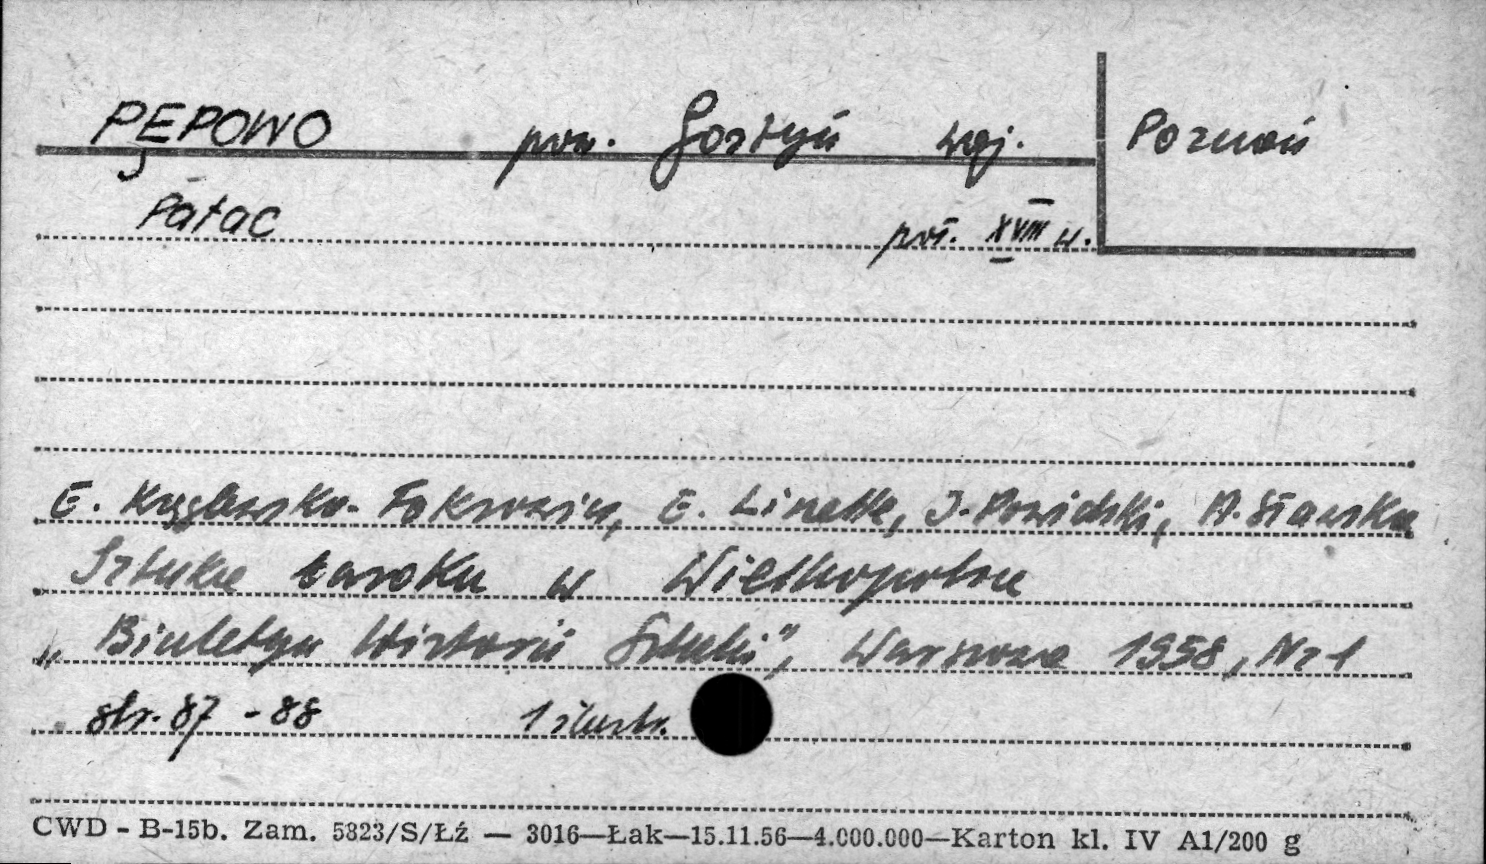 PĘPOWO pow. Gostyń woj. Poznań
Pałac poł. XVIII w.
E. Kręglewska-Foksowicz, E. Linette, J. Powidzki, A. Sławska
Sztuka baroku w Wielkopolsce
„Biuletyn Historii Sztuki", Warszawa 1958, Nr 1
str. 87 - 88 1 ilustr.
CWD - B-15b. Zam. 5323/S/Łź — 3016—Łak—15.11.56—4.000.000—Karton kl. IV A1/200 g